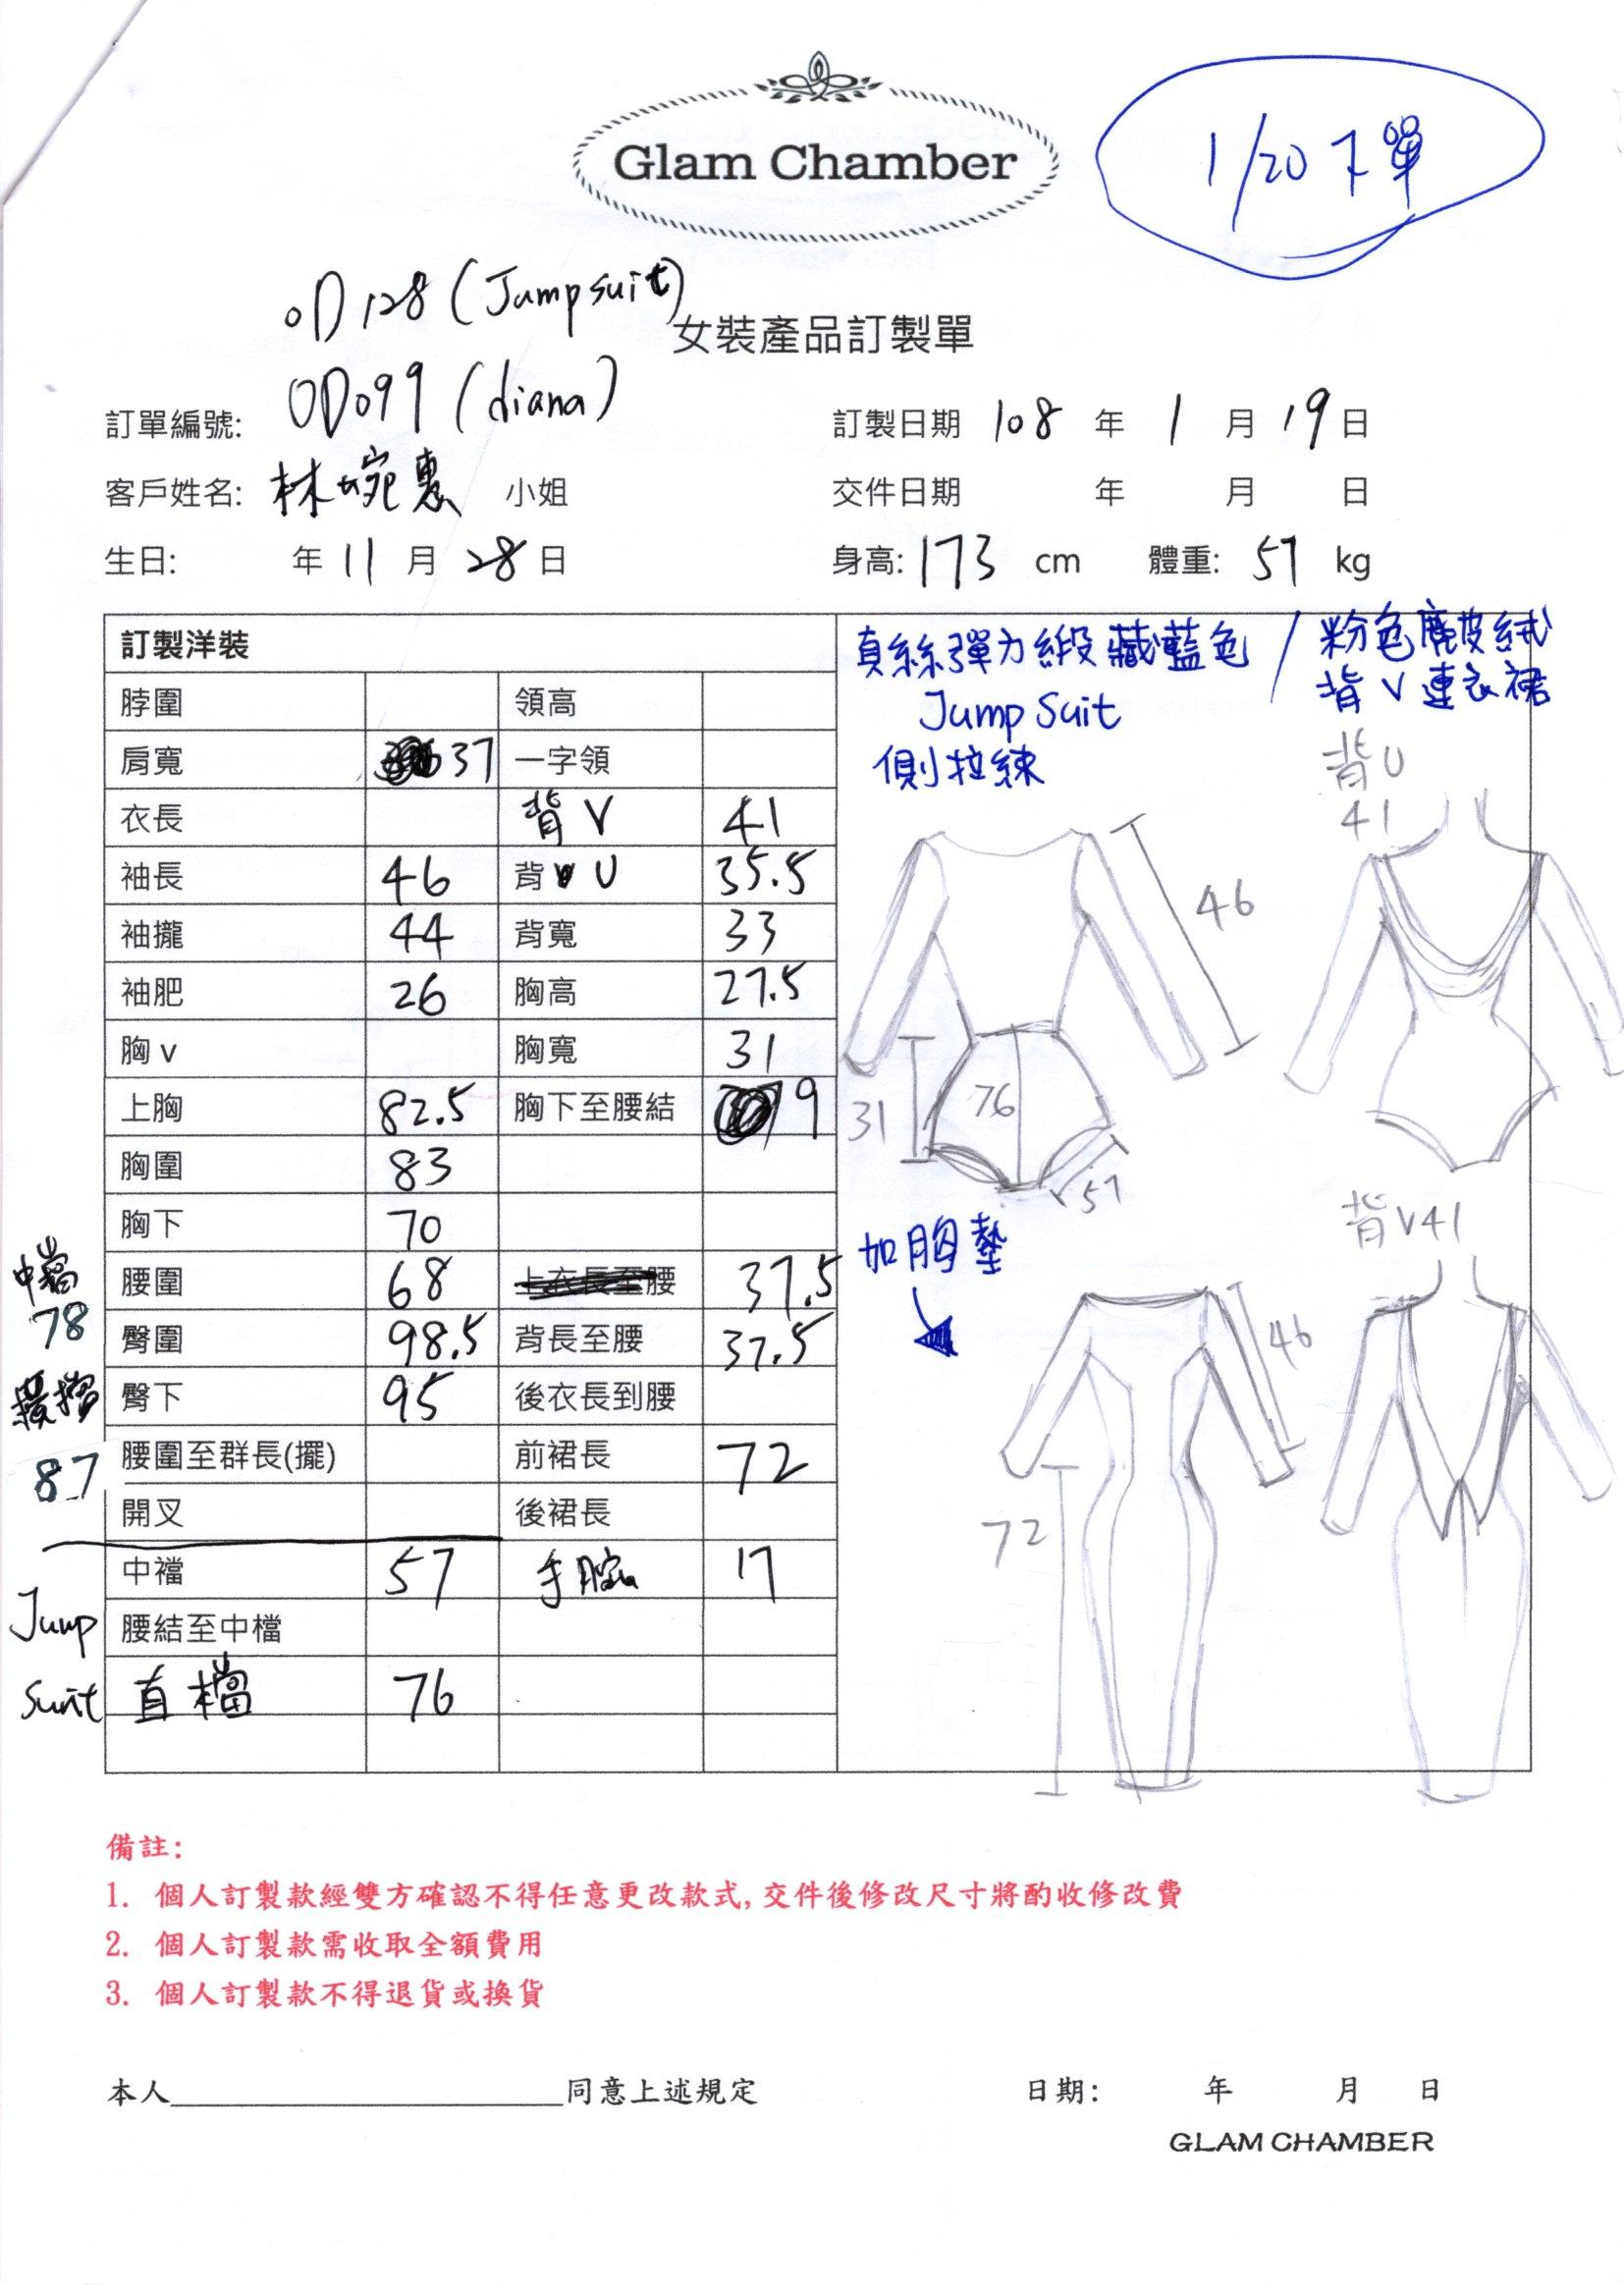 Glam Chamber
1/20 下單
OD128 (Jumpsuit)
女裝產品訂製單
OD099 (diana)
訂單編號:
訂製日期 108 年 1 月 19 日
客戶姓名: 林婉惠 小姐
交件日期 年 月 日
生日: 年 11 月 28 日
身高: 173 cm 體重: 57 kg
訂製洋裝
脖圍 領高
肩寬 37 一字領
衣長 背V 41
袖長 46 背U 35.5
袖攏 44 背寬 33
袖肥 26 胸高 27.5
胸v 胸寬 31
上胸 82.5 胸下至腰結 9
胸圍 83
胸下 70
腰圍 68 上衣長至腰 37.5
臀圍 98.5 背長至腰 37.5
臀下 95 後衣長到腰
腰圍至群長(擺) 前裙長 72
開叉 後裙長
中襠 57 手腕 17
腰結至中檔
直檔 76
中檔
78
橫檔
87
Jump
Suit
真絲彈力緞 藏藍色 / 粉色麂皮絨
Jump Suit 背V連衣裙
側拉練
背U
41
46
31
76
57
加胸墊
背V41
46
72
備註:
1. 個人訂製款經雙方確認不得任意更改款式,交件後修改尺寸將酌收修改費
2. 個人訂製款需收取全額費用
3. 個人訂製款不得退貨或換貨
本人____________________同意上述規定
日期: 年 月 日
GLAM CHAMBER